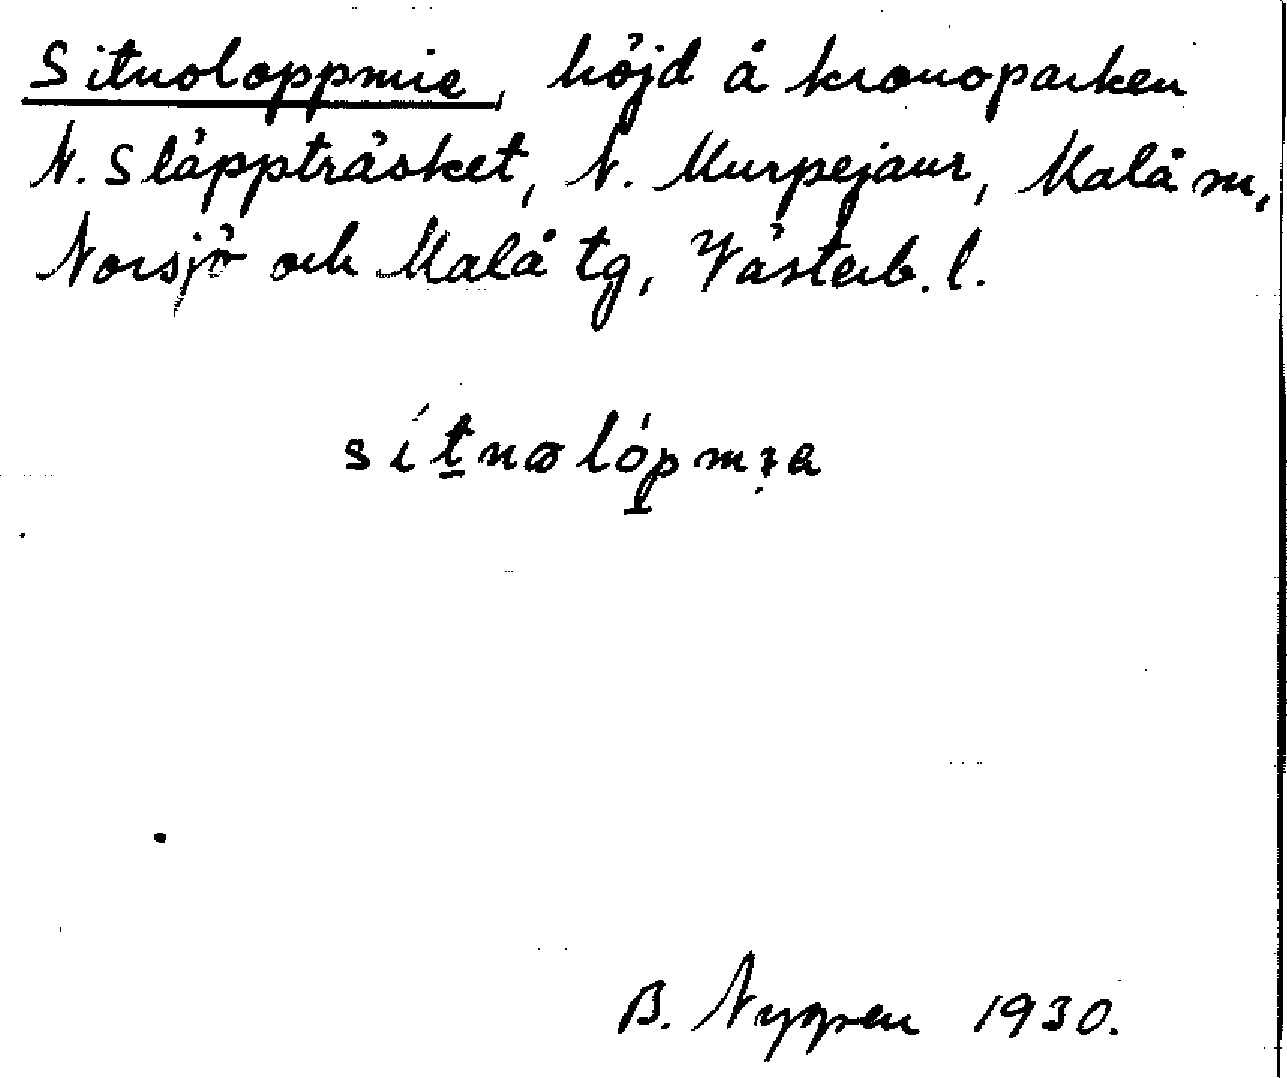 Sitnoloppmie, höjd å kronoparken
N. Släppträsket, N. Murpejaur, Malå sn,
Norsjö och Malå tg, Västerb. l.
B. Nygren 1930.